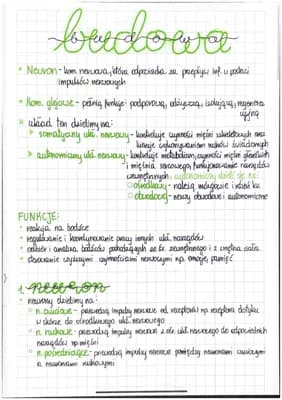 budowa
• Neuron - kom. nerwowa, która odpowiada za przepływ inf. w postaci
impulsów nerwowych
• Kom. glejowe - pełnią funkcje: podporową, odżywczą, izolującą, regenera
cyjną
• układ ten dzielimy na:
somatyczny ukł. nerwowy - kontroluje czynności mięśni szkieletowych oraz
kieruje wykonywaniem ruchów świadomych
autonomiczny ukł. nerwowy - kontroluje metabolizm, czynności mięśni gładkich
i mięśnia sercowego, funkcjonowanie narządów
wewnętrznych, autonomiczny dzieli się na:
ośrodkowy - należą mózgowie i rdzeń kr.
obwodowy - nerwy obwodowe i autonomiczne
FUNKCJE:
• reakcja na bodźce
• regulowanie i koordynowanie pracy innych ukł. narządów
• odbiór i analiza bodźców pochodzących ze śr. zewnętrznego i z wnętrza ciała
• sterowanie wyższymi czynnościami nerwowymi np. emocje, pamięć
1. neuron
• neurony dzielimy na:
n. czuciowe - przewodzą impulsy nerwowe od receptorów np. receptora dotyku
w skórze do ośrodkowego ukł. nerwowego
n. ruchowe - przewodzą impulsy nerwowe z ośr. ukł. nerwowego do odpowiednich
narządów np. mięśni
n. pośredniczące - przewodzą impulsy nerwowe pomiędzy neuronami czuciowymi
a neuronami ruchowymi